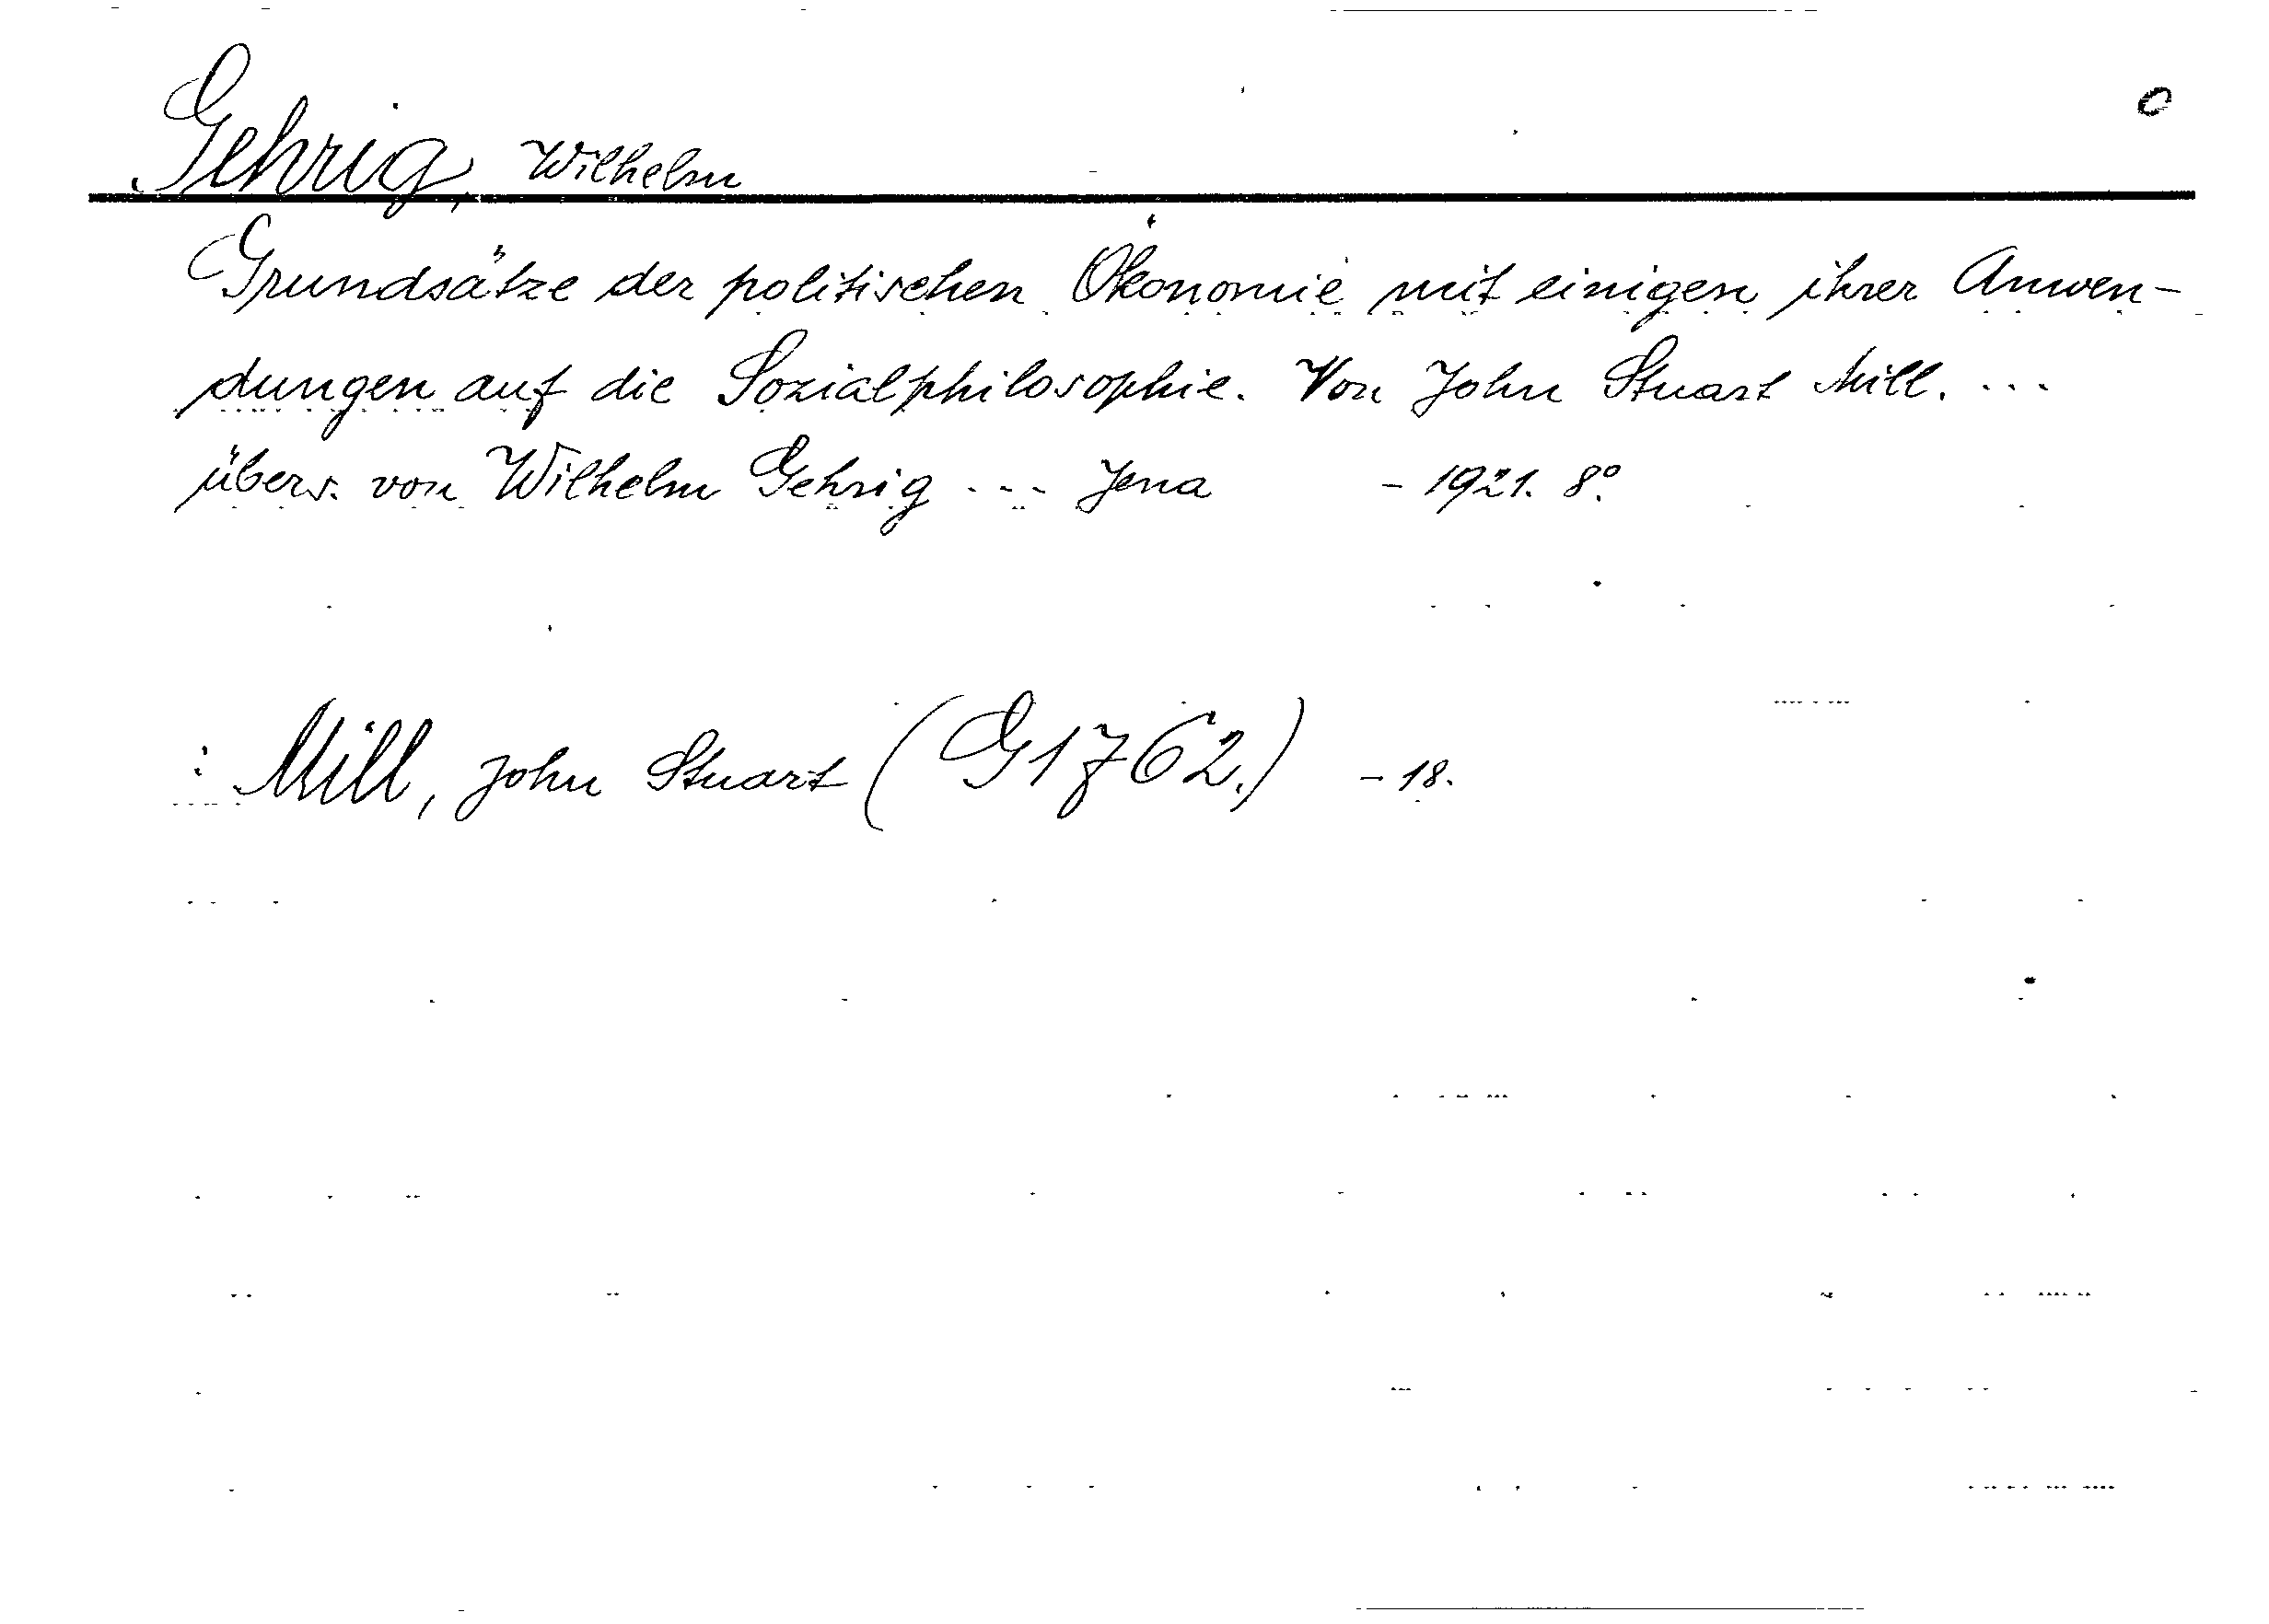 Gehrig, Wilhelm
Grundsätze der politischen Ökonomie mit einigen ihrer Anwen-
dungen auf die Sozialphilosophie. Von John Stuart Mill. ...
übers. von Wilhelm Gehrig ... Jena - 1921. 8°.
: Mill, John Stuart (G1762.) - 18.